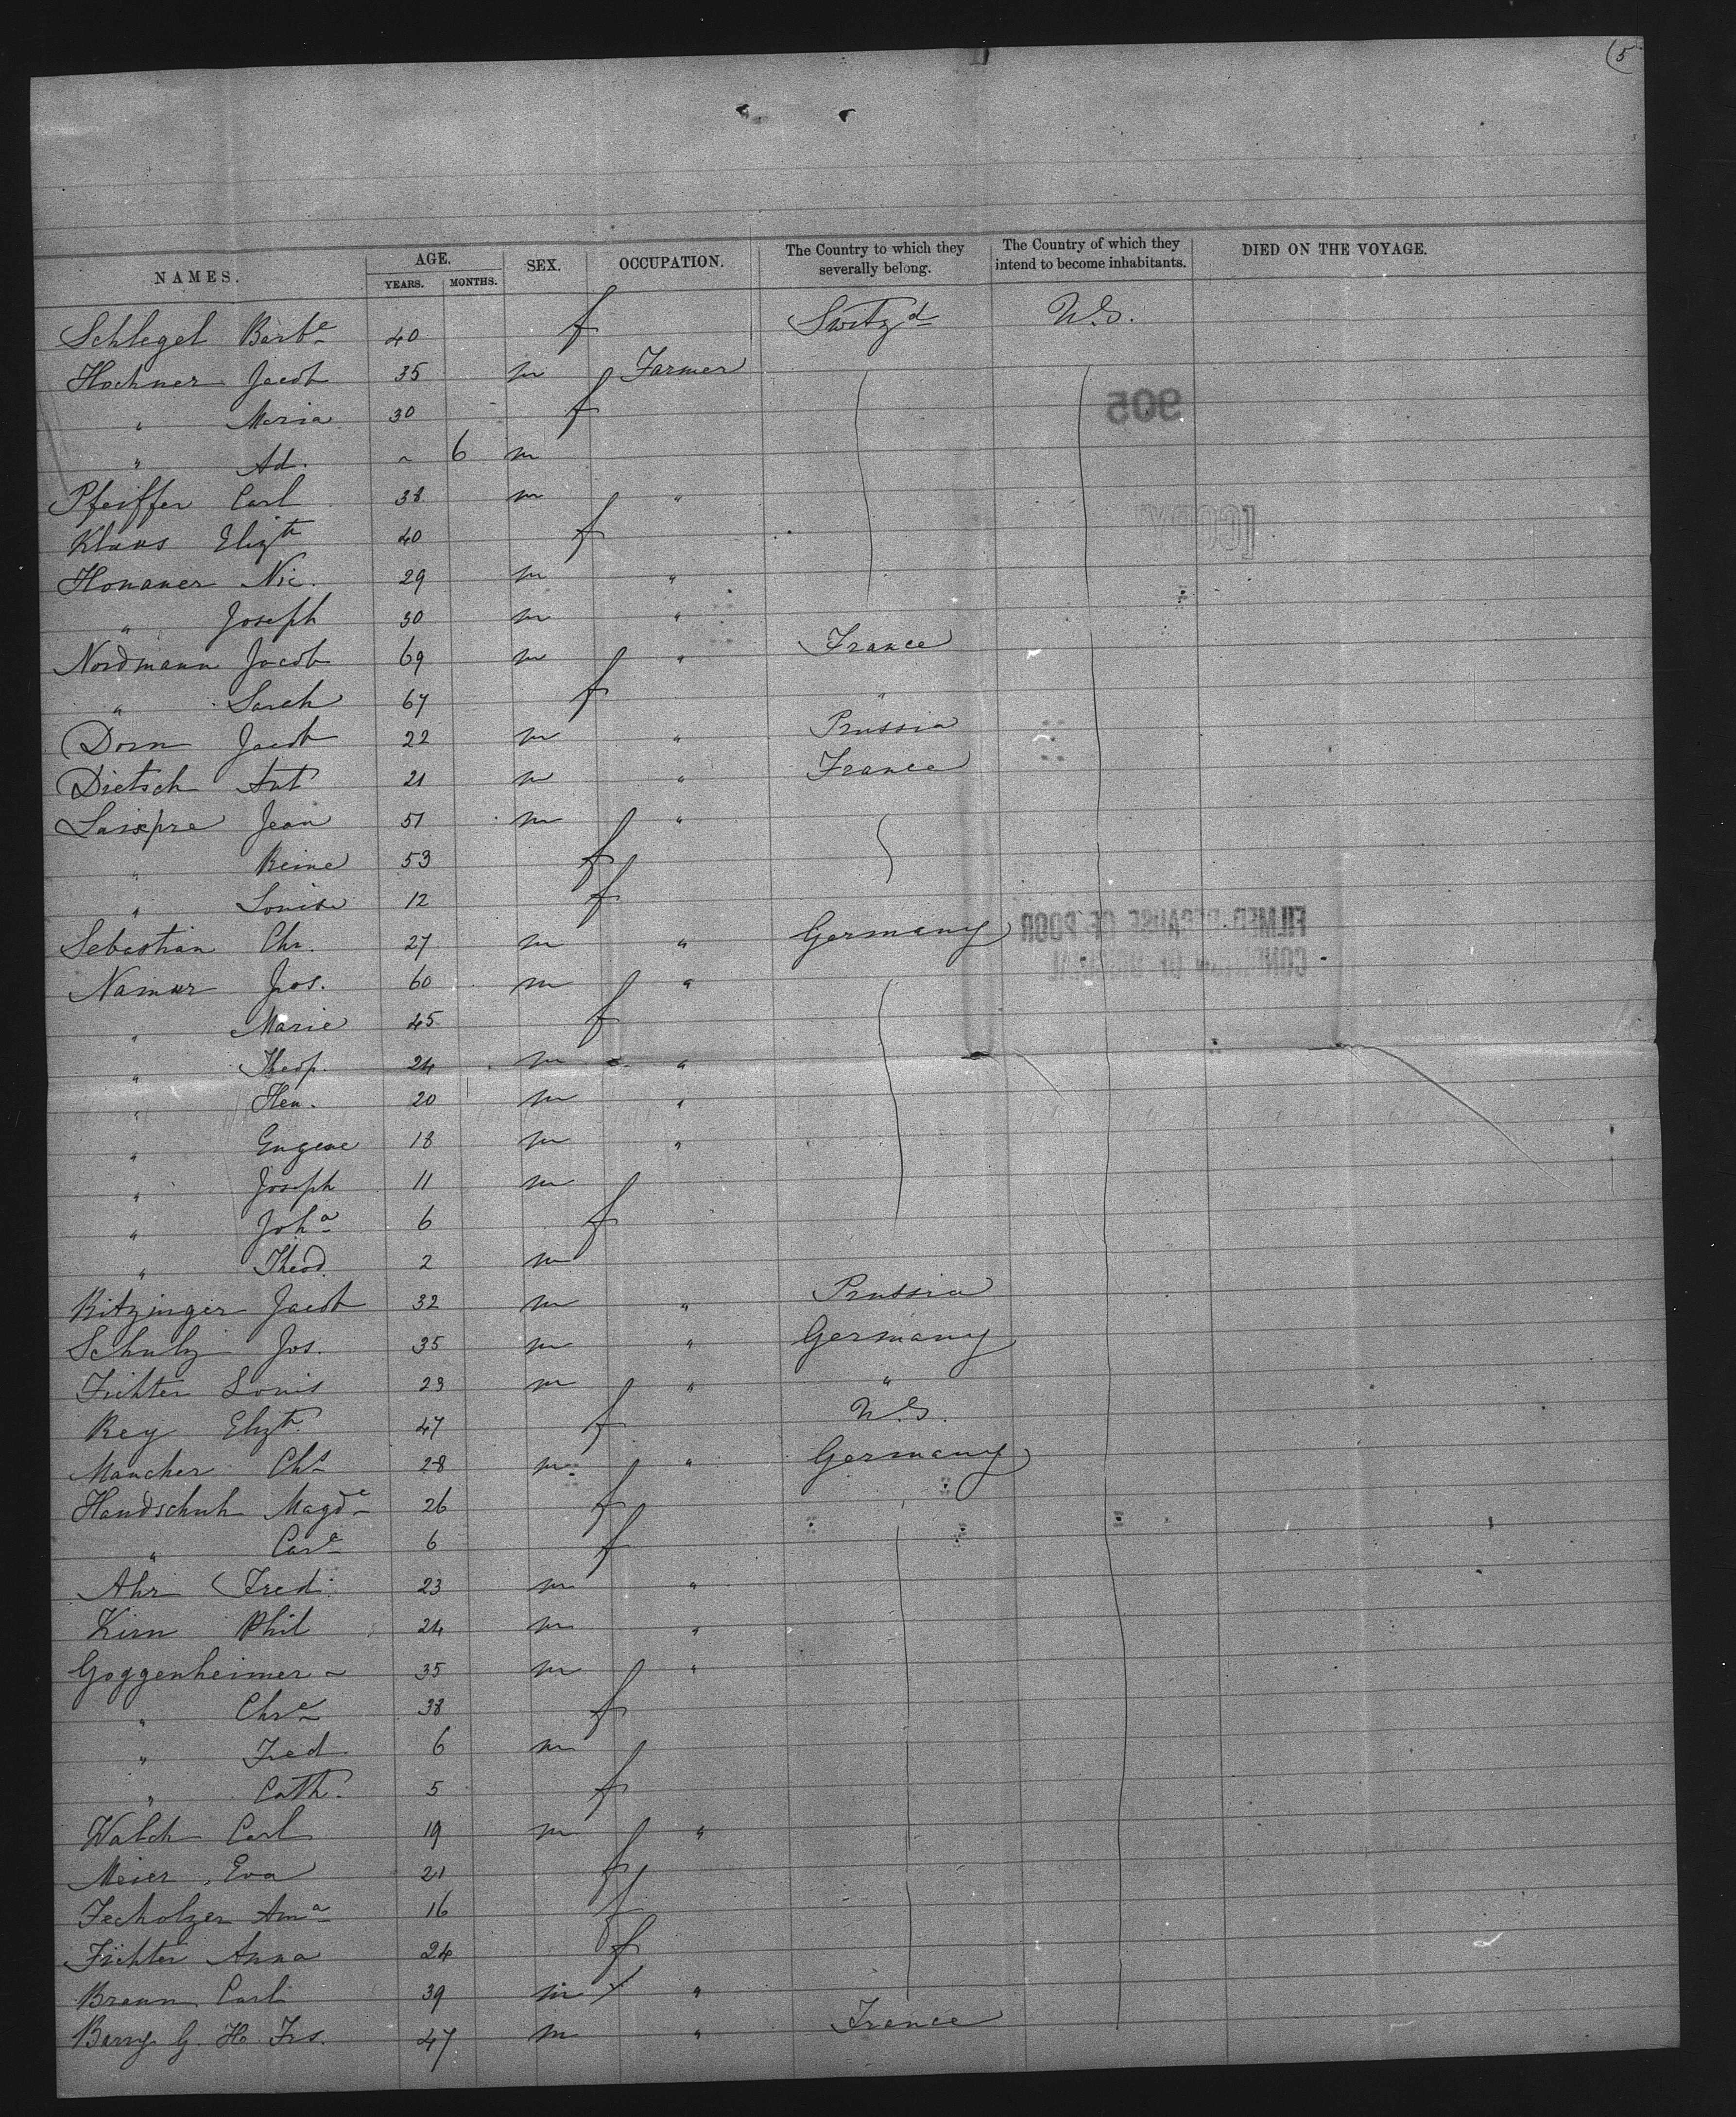 (5
NAMES. AGE. YEARS. MONTHS. SEX. OCCUPATION. The Country to which they severally belong. The Country of which they intend to become inhabitants. DIED ON THE VOYAGE.
Schlegel Barbe 40 f Switzd U.S.
Hochner Jacob 35 m Farmer
" Maria 30 f
905
" Ad. ~ 6 m
Pfeiffer Carl 38 m "
[COPY]
Klaus Elizth 40 f
Honauer Nic. 29 m "
" Joseph 30 m "
Nordmann Jacob 69 m " France
" Sarah 67 f "
Dorn Jacob 22 m " Prussia
Dietsch Ant 21 m " France
Jean 51 m "
" Reine 53 f
" Louise 12 f
Sebastian Chr. 27 m " Germany
FILMED BECAUSE OF POOR
CONDITION OF ORIGINAL
Namur Jos. 60 m "
" Marie 45 f
" Theop. 24 m "
" Hen. 20 m "
" Eugene 18 m "
" Joseph 11 m
" Joha 6 f
" Theod. 2 m
Ritzinger Jacob 32 m " Prussia
Schulz Jos. 35 m " Germany
Fichter Louis 23 m " "
Rey Elizth. 47 f U.S.
Mancher Chs 28 m " Germany
Handschuh Magde 26 f
" Care 6 f
Ahr Fred. 23 m "
Kirn Phil 24 m "
Goggenheimer ~ 35 m "
" Chre 38 f
" Fred 6 m
" Cath. 5 f
Walch Carl 19 m "
Meier Eva 21 f
Ama 16 f
Fichter Anna 24 f
Braun Carl 39 m "
Barry G. H. Frs. 47 m " France